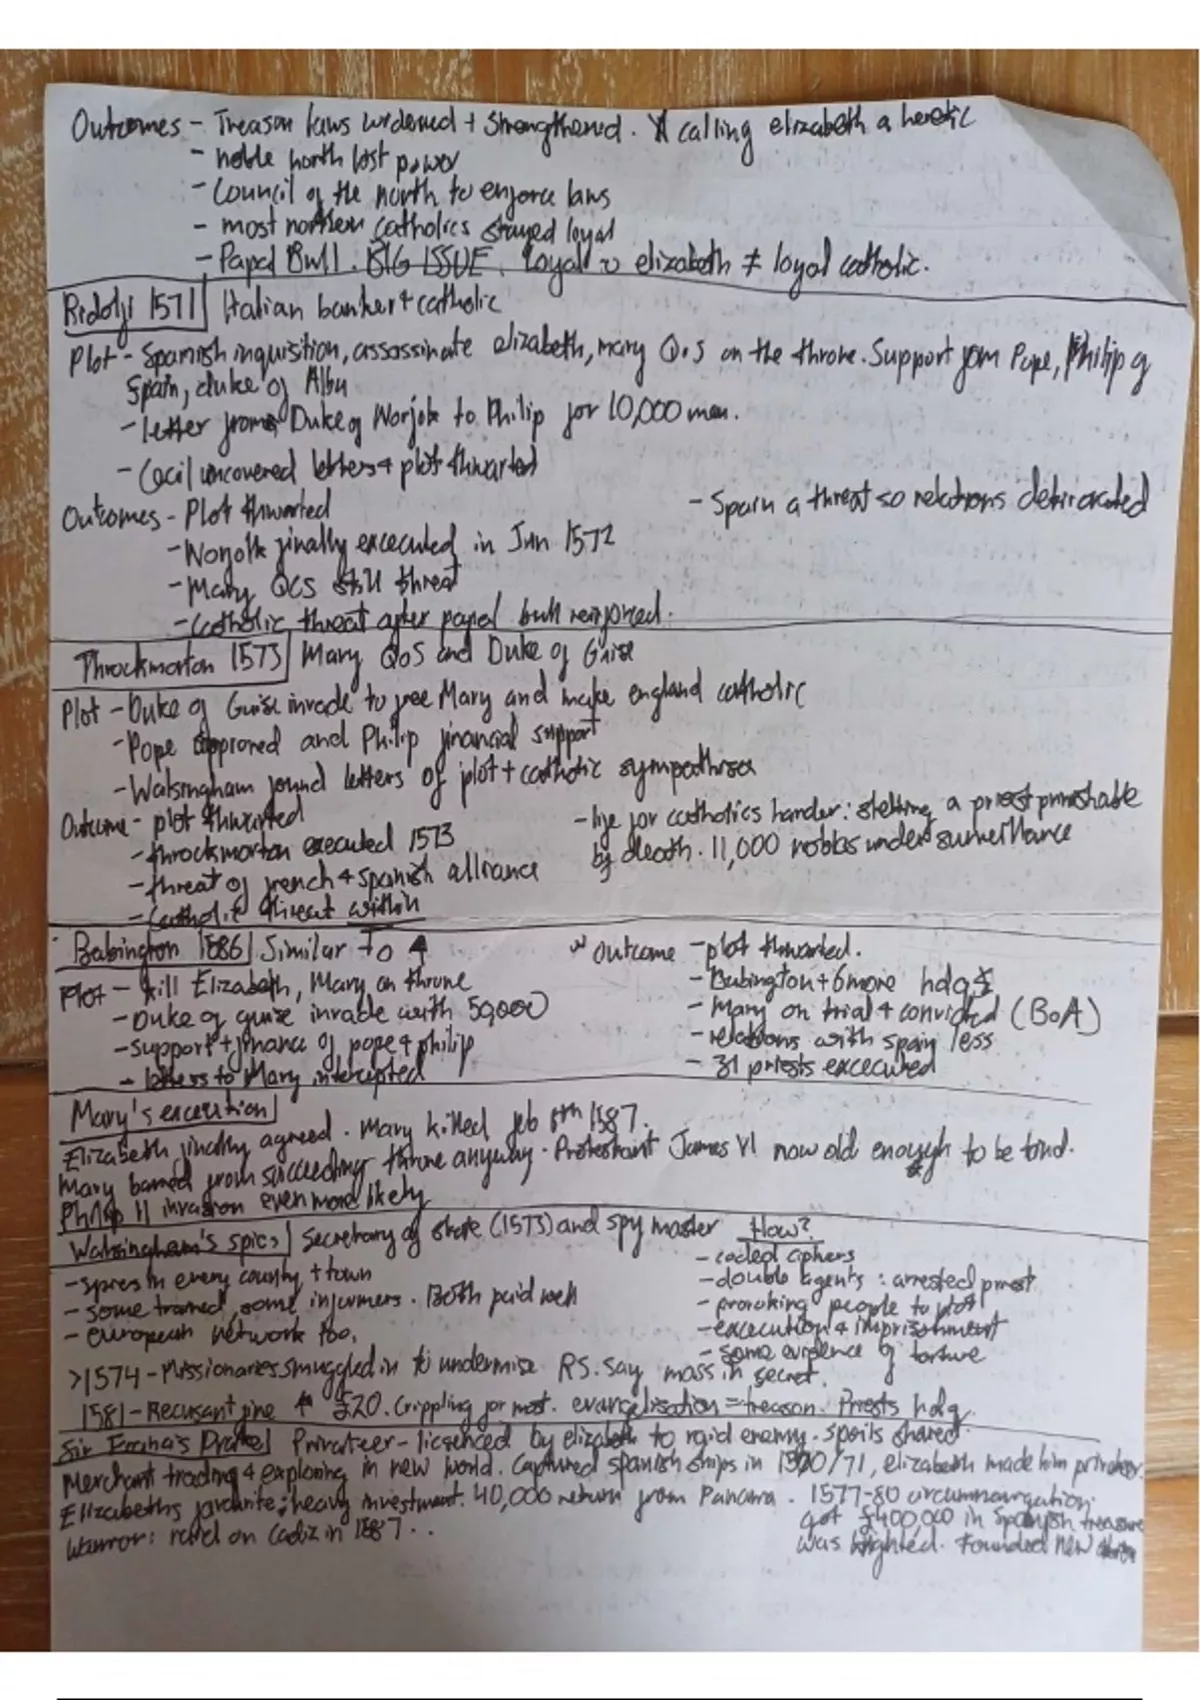 Outcomes - Treason laws widened + Strengthened. calling elizabeth a heretic
- noble north lost power
- Council of the north to enforce laws
- most northern catholics stayed loyal
- Papal Bull. BIG ISSUE. Loyal elizabeth ≠ loyal catholic.
Ridolfi 1571 Italian banker + catholic
Plot - Spanish inquisition, assassinate elizabeth, mary Q.S on the throne. Support from Pope, Philip of
Spain, duke of Alba
- letter from Duke of Norfolk to Philip for 10,000 men.
- Cecil uncovered letters + plot thwarted
Outcomes - Plot thwarted
- Spain a threat so relations
- Norfolk finally excecuted in Jun 1572
- Mary QCS still threat
- Catholic threat after papal bull reinforced.
Throckmorton 1573 Mary QoS and Duke of Guise
Plot - Duke of Guise invade to free Mary and make england catholic
- Pope approved and Philip financial support
- Walsingham found letters of plot + catholic
Outcome - plot thwarted
- life for catholics harder: a priest punishable
by death. 11,000 nobles under surveillance
- throckmorton executed 1573
- threat of french + spanish alliance
- Catholic threat within
Babington 1586 Similar to ↑
Plot - kill Elizabeth, Mary on throne
- Duke of guise invade with 50,000
- support + finance of pope + philip
- letters to Mary intercepted
Outcome - plot thwarted.
- Babington + 6 more hdq
- Mary on trial + convicted (BoA)
- relations with spain less
- 31 priests excecuted
Mary's execution
Elizabeth finally agreed. Mary killed feb 8th 1587.
Mary barred from succeeding throne anyway. Protestant James VI now old enough to be
Philip II invasion even more likely
Walsingham's spies Secretary of state (1573) and spy master How?
- spies in every county + town
- some trained, some informers. Both paid well
- european network too.
- coded ciphers
- double agents: arrested priest
- provoking people to plot
- excecution + imprisonment
- some evidence of torture
>1574 - Missionaries smuggled in to undermine RS. say mass in secret.
1581 - Recusant fine ↑ £20. Crippling for most. evangelisation = treason. Priests hdq
Sir Drake Privateer - licsenced by elizabeth to raid enemy. spoils shared.
Merchant trading + exploring in new world. Captured spanish ships in 1570/71, elizabeth made him privateer.
Elizabeths favourite: heavy investment. 40,000 return from Panama. 1577-80 circumnavigation.
got £400,000 in Spanish treasure
Warrior: raid on Cadiz in 1587..
was knighted. Founded New